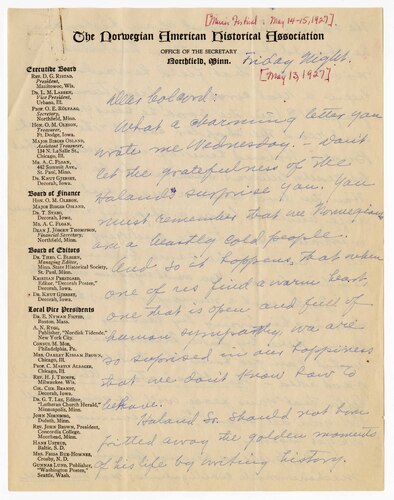 [Music Festival: May 14-15, 1927]
The Norwegian American Historical Association
OFFICE OF THE SECRETARY
Northfield, Minn.
Friday Night.
[May 13, 1927]
Executive Board
REV. D. G. RISTAD,
President,
Manitowoc, Wis.
DR. L. M. LARSON,
Vice President,
Urbana, Ill.
PROF. O. E. RÖLVAAG,
Secretary,
Northfield, Minn.
HON. O. M. OLESON,
Treasurer,
Ft. Dodge, Iowa.
MAJOR BIRGER OSLAND,
Assistant Treasurer,
134 N. LaSalle St.,
Chicago, Ill.
MR. A. C. FLOAN,
442 Summit Ave.,
St. Paul, Minn.
DR. KNUT GJERSET,
Decorah, Iowa.
Board of Finance
HON. O. M. OLESON,
MAJOR BIRGER OSLAND,
DR. T. STABO,
Decorah, Iowa.
MR. A. C. FLOAN,
DEAN J. JÖRGEN THOMPSON,
Financial Secretary,
Northfield, Minn.
Board of Editors
DR. THEO. C. BLEGEN,
Managing Editor,
Minn. State Historical Society,
St. Paul, Minn.
KRISTIAN PRESTGARD,
Editor, "Decorah Posten,"
Decorah, Iowa.
DR. KNUT GJERSET,
Decorah, Iowa.
Local Vice Presidents
DR. E. NYMAN FIGVED,
Boston, Mass.
A. N. RYGG,
Publisher, "Nordisk Tidende,"
New York City.
CONSUL M. MOE,
Philadelphia, Pa.
MRS. OAKLEY KISSAM BROWN,
Chicago, Ill.
PROF. C. MARTIN ALSAGER,
Chicago, Ill.
REV. H. J. THORPE,
Milwaukee, Wis.
COL. CHR. BRANDT,
Decorah, Iowa.
DR. G. T. LEE, Editor,
"Lutheran Church Herald,"
Minneapolis, Minn.
JOHN NORNBORG,
Duluth, Minn.
REV. JOHN BROWN, President,
Concordia College,
Moorhead, Minn.
HANS USTRUD,
Baltic, S. D.
MRS. FRIDA BUE-HOMNES,
Crosby, N. D.
GUNNAR LUND, Publisher,
"Washington Posten,"
Seattle, Wash.
Dear Colcord:
What a charming letter you
wrote me Wednesday! – Don't
let the gratefulness of the
Halands surprise you. You
must remember that we Norwegians
are a beastly cold people.
And so it happens that when
one of us find a warm heart,
one that is open and full of
human sympathy, we are
so surprised in our happiness
that we don't know how to
behave.
Haland Sr. should not have
fritted away the golden moments
of his life by writing history.